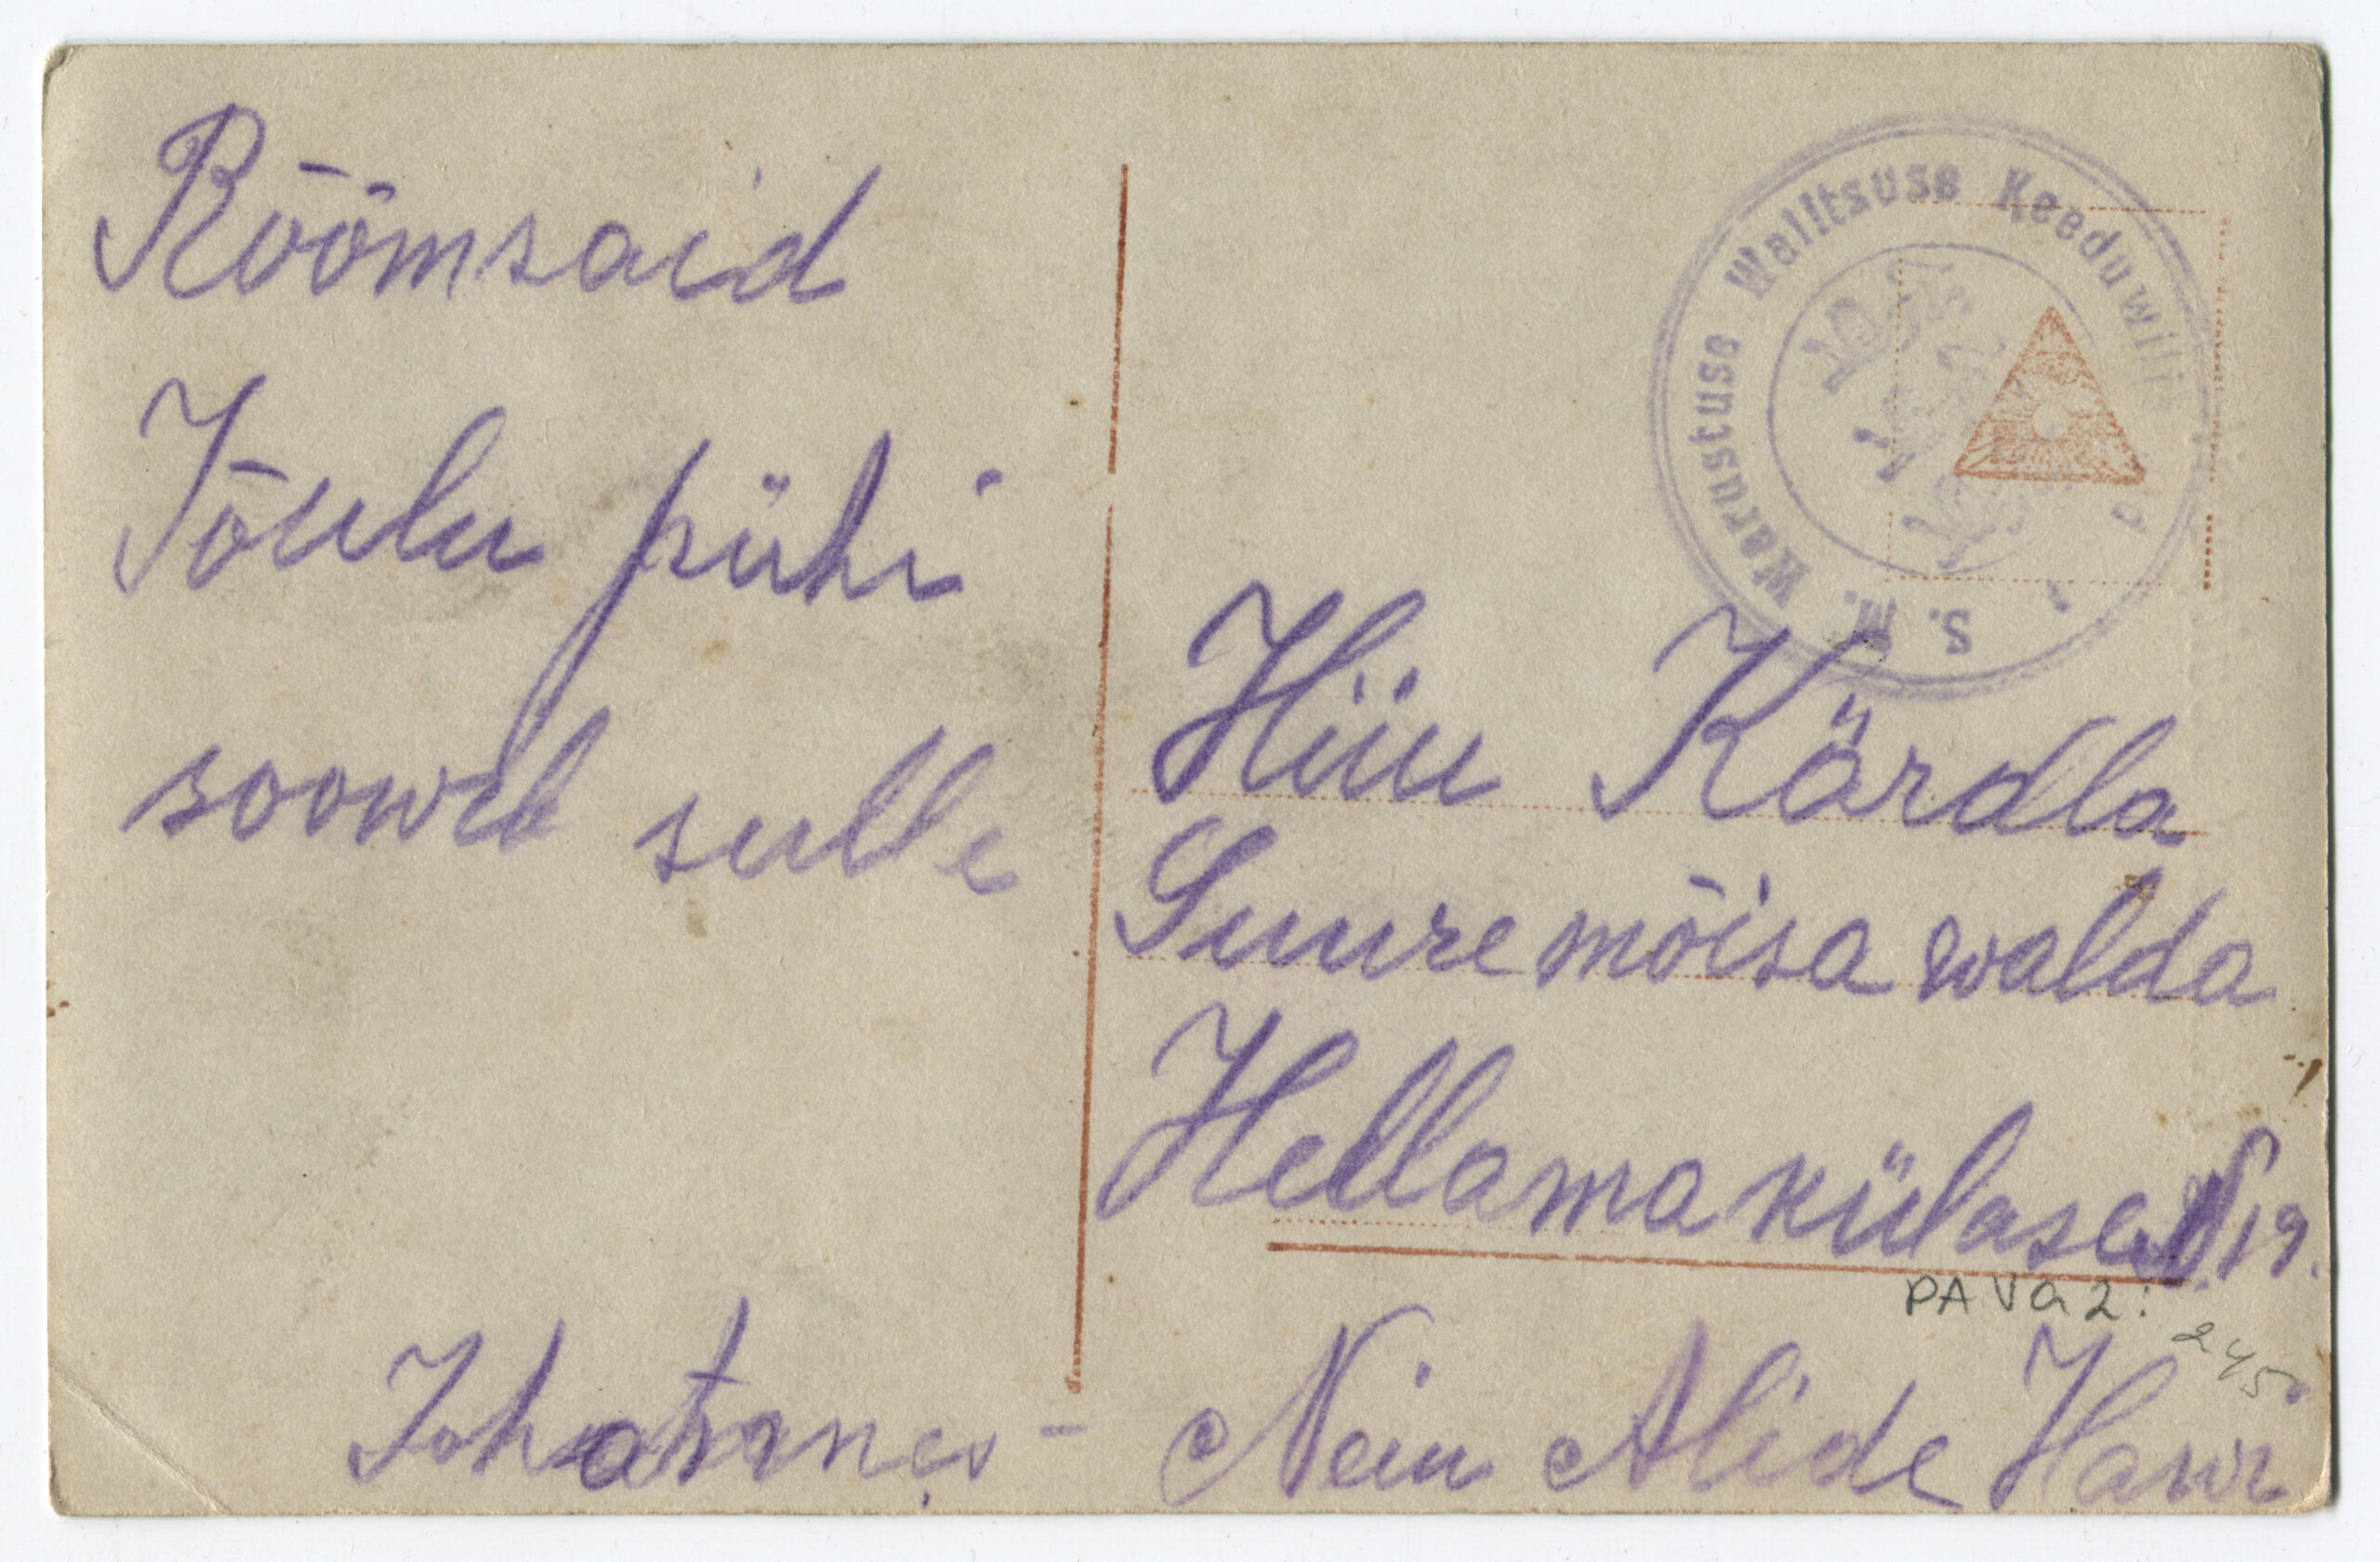 Rõõmsaid
Jõulu pühi
soowib sulle
Johannes -
S. M. Warustuse Walitsuse Keeduwili
Hiiu Kärdla
Suuremõisa walda
Hellamaküla
19.
PA Va 2:
245
Nein Alide Hawi